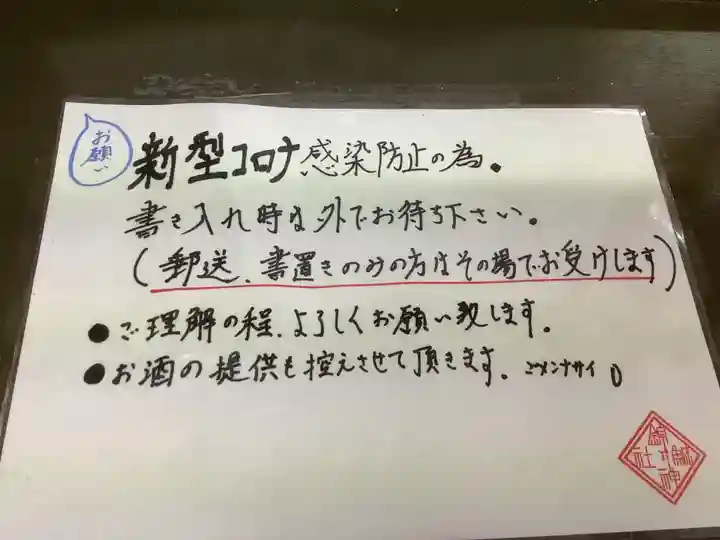 お願い
新型コロナ感染防止の為。
書き入れ時は外でお待ち下さい。
(郵送、書置きのみの方はその場でお受けします)
●ご理解の程、よろしくお願い致します。
●お酒の提供も控えさせて頂きます。ゴメンナサイ
神社